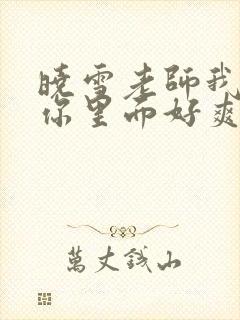 曉雪老師我
你里面好爽
萬丈錢山